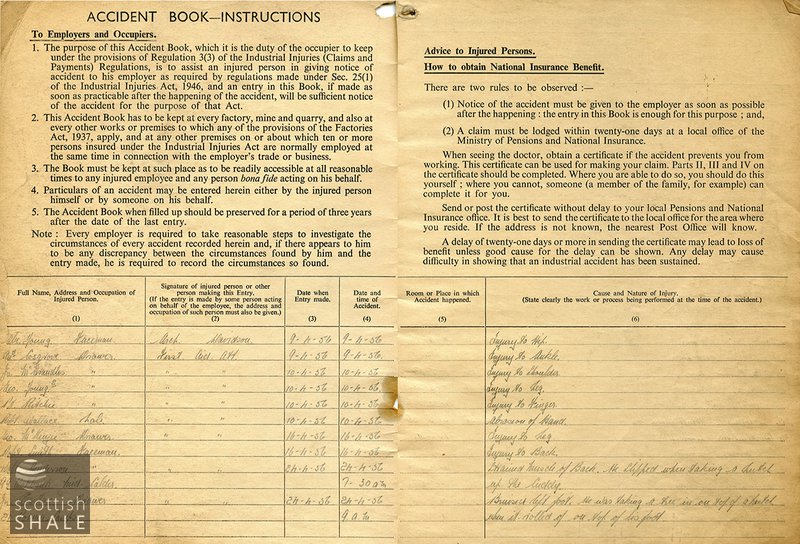 ACCIDENT BOOK—INSTRUCTIONS
To Employers and Occupiers.
1. The purpose of this Accident Book, which it is the duty of the occupier to keep
under the provisions of Regulation 3(3) of the Industrial Injuries (Claims and
Payments) Regulations, is to assist an injured person in giving notice of
accident to his employer as required by regulations made under Sec. 25(1)
of the Industrial Injuries Act, 1946, and an entry in this Book, if made as
soon as practicable after the happening of the accident, will be sufficient
notice of the accident for the purpose of that Act.
2. This Accident Book has to be kept at every factory, mine and quarry, and also at
every other works or premises to which any of the provisions of the Factories
Act, 1937, apply, and at any other premises on or about which ten or more
persons insured under the Industrial Injuries Act are normally employed at
the same time in connection with the employer's trade or business.
3. The Book must be kept at such place as to be readily accessible at all reasonable
times to any injured employee and any person bona fide acting on his behalf.
4. Particulars of an accident may be entered herein either by the injured person
himself or by someone on his behalf.
5. The Accident Book when filled up should be preserved for a period of three years
after the date of the last entry.
Note : Every employer is required to take reasonable steps to investigate the
circumstances of every accident recorded herein and, if there appears to him
to be any discrepancy between the circumstances found by him and the
entry made, he is required to record the circumstances so found.
Advice to Injured Persons.
How to obtain National Insurance Benefit.
There are two rules to be observed :—
(1) Notice of the accident must be given to the employer as soon as possible
after the happening : the entry in this Book is enough for this purpose ; and,
(2) A claim must be lodged within twenty-one days at a local office of the
Ministry of Pensions and National Insurance.
When seeing the doctor, obtain a certificate if the accident prevents you from
working. This certificate can be used for making your claim. Parts II, III and IV on
the certificate should be completed. Where you are able to do so, you should do this
yourself ; where you cannot, someone (a member of the family, for example) can
complete it for you.
Send or post the certificate without delay to your local Pensions and National
Insurance office. It is best to send the certificate to the local office for the area where
you reside. If the address is not known, the nearest Post Office will know.
A delay of twenty-one days or more in sending the certificate may lead to loss of
benefit unless good cause for the delay can be shown. Any delay may cause
difficulty in showing that an industrial accident has been sustained.
Full Name, Address and Occupation of
Injured Person.
(1)
Signature of injured person or other
person making this Entry.
(If the entry is made by some person acting
on behalf of the employee, the address and
occupation of such person must also be given.)
(2)
Date when
Entry made.
(3)
Date and
time of
Accident.
(4)
Room or Place in which
Accident happened.
(5)
Cause and Nature of Injury.
(State clearly the work or process being performed at the time of the accident.)
(6)
Young Faceman Arch Davidson 9-4-56 9-4-56 Injury to Hip.
Cosgrove Drawer. First Aid 9-4-56 9-4-56 Injury to Ankle.
" " " 10-4-56 10-4-56 Injury to Shoulder
Geo. Young " " " 10-4-56 10-4-56 Injury to Leg.
Ritchie " " " 10-4-56 10-4-56 Injury to Finger.
Wallace " " 10-4-56 10-4-56 Abrasion of Hand.
Geo. Drawer " " 16-4-56 16-4-56 Injury to Leg
Faceman. 16-4-56 16-4-56 Injury to Back.
" " 24-4-56 24-4-56 Strained Muscle of Back. He slipped when taking a hutch
7-30 a m up the
" " 24-4-56 24-4-56 Bruised left foot. He was taking a tree in on top of a hutch
9 a m when it rolled of on top of his foot
scottish
SHALE